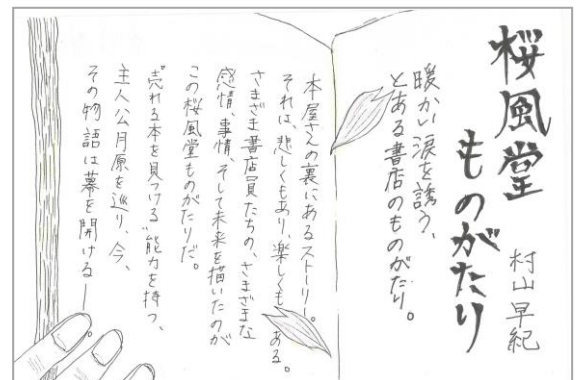 桜風堂
ものがたり
村山早紀
暖かい涙を誘う、
とある書店のものがたり。
本屋さんの裏にあるストーリー。
それは、悲しくもあり、楽しくもある。
さまざま書店員たちの、さまざまな
感情、事情、そして未来を描いたのが
この桜風堂ものがたりだ。
売れる本を見つける〝能力を持つ、
主人公月原を巡り、今、
その物語は幕を開ける――。